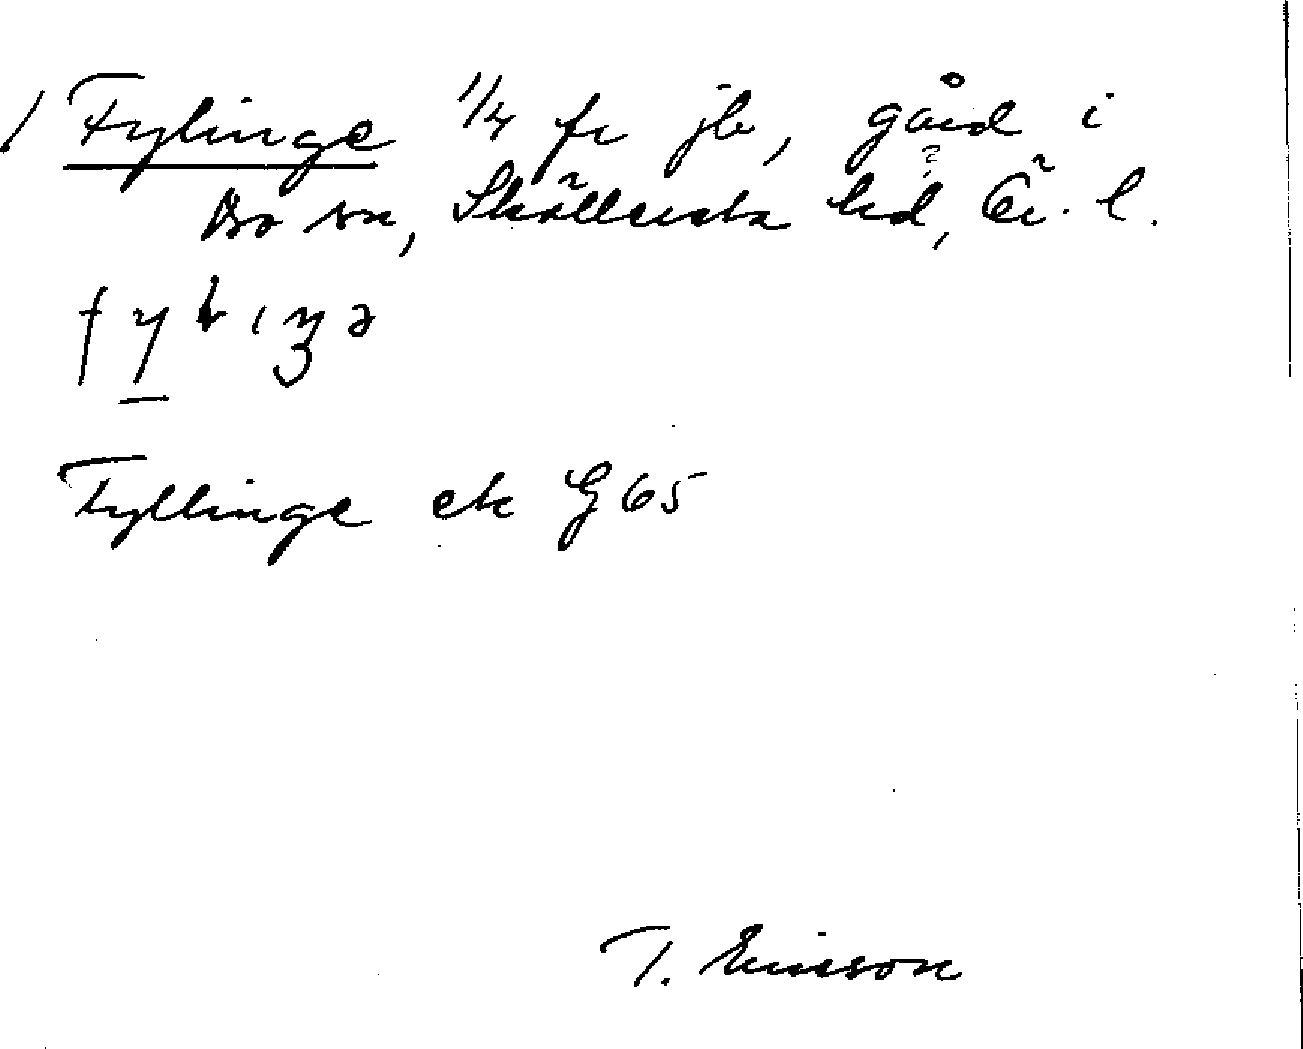 / Fylinge 1/4 fr jb, gård i
Bo sn, Skyllersta hd, Ör. l.
Fyllinge ek G 65
T. Ericsson